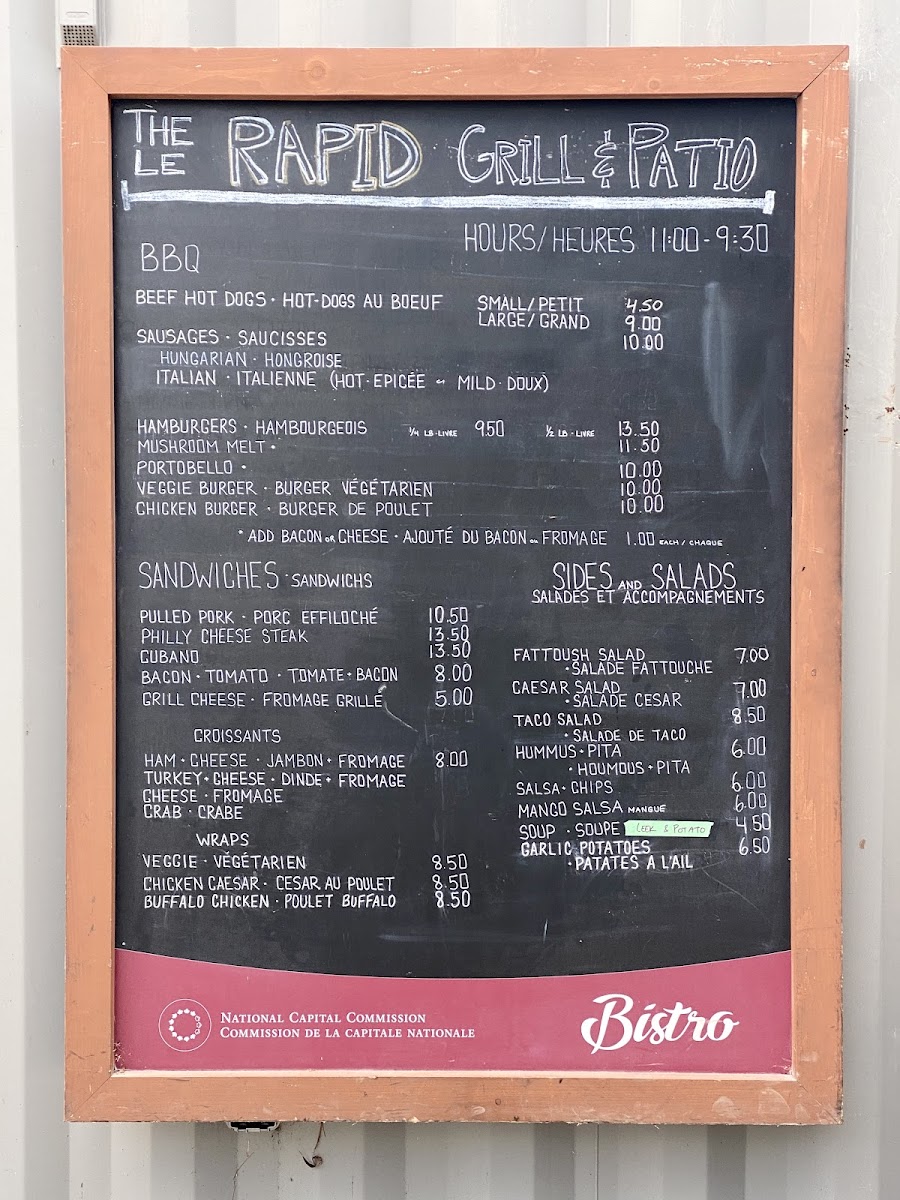 THE LE RAPID GRILL & PATIO
HOURS/HEURES 11:00-9:30
BBQ
BEEF HOT DOGS · HOT-DOGS AU BOEUF SMALL/PETIT 4.50
LARGE/GRAND 9.00
SAUSAGES · SAUCISSES 10.00
HUNGARIAN · HONGROISE
ITALIAN · ITALIENNE (HOT·EPICÉE or MILD·DOUX)
HAMBURGERS · HAMBOURGEOIS 1/4 LB·LIVRE 9.50 1/2 LB·LIVRE 13.50
MUSHROOM MELT · 11.50
PORTOBELLO · 10.00
VEGGIE BURGER · BURGER VÉGÉTARIEN 10.00
CHICKEN BURGER · BURGER DE POULET 10.00
* ADD BACON or CHEESE · AJOUTÉ DU BACON ou FROMAGE 1.00 EACH / CHAQUE
SANDWICHES · SANDWICHS
PULLED PORK · PORC EFFILOCHÉ 10.50
PHILLY CHEESE STEAK 13.50
CUBANO 13.50
BACON · TOMATO · TOMATE + BACON 8.00
GRILL CHEESE · FROMAGE GRILLÉ 5.00
CROISSANTS
HAM + CHEESE · JAMBON + FROMAGE 8.00
TURKEY + CHEESE · DINDE + FROMAGE
CHEESE · FROMAGE
CRAB · CRABE
WRAPS
VEGGIE · VÉGÉTARIEN 8.50
CHICKEN CAESAR · CESAR AU POULET 8.50
BUFFALO CHICKEN · POULET BUFFALO 8.50
SIDES AND SALADS
SALADES ET ACCOMPAGNEMENTS
FATTOUSH SALAD 7.00
· SALADE FATTOUCHE
CAESAR SALAD 7.00
· SALADE CESAR
TACO SALAD 8.50
· SALADE DE TACO
HUMMUS + PITA 6.00
· HOUMOUS + PITA
SALSA + CHIPS 6.00
MANGO SALSA MANGUE 6.00
SOUP · SOUPE LEEK & POTATO 4.50
GARLIC POTATOES 6.50
· PATATES A L'AIL
NATIONAL CAPITAL COMMISSION
COMMISSION DE LA CAPITALE NATIONALE
Bistro